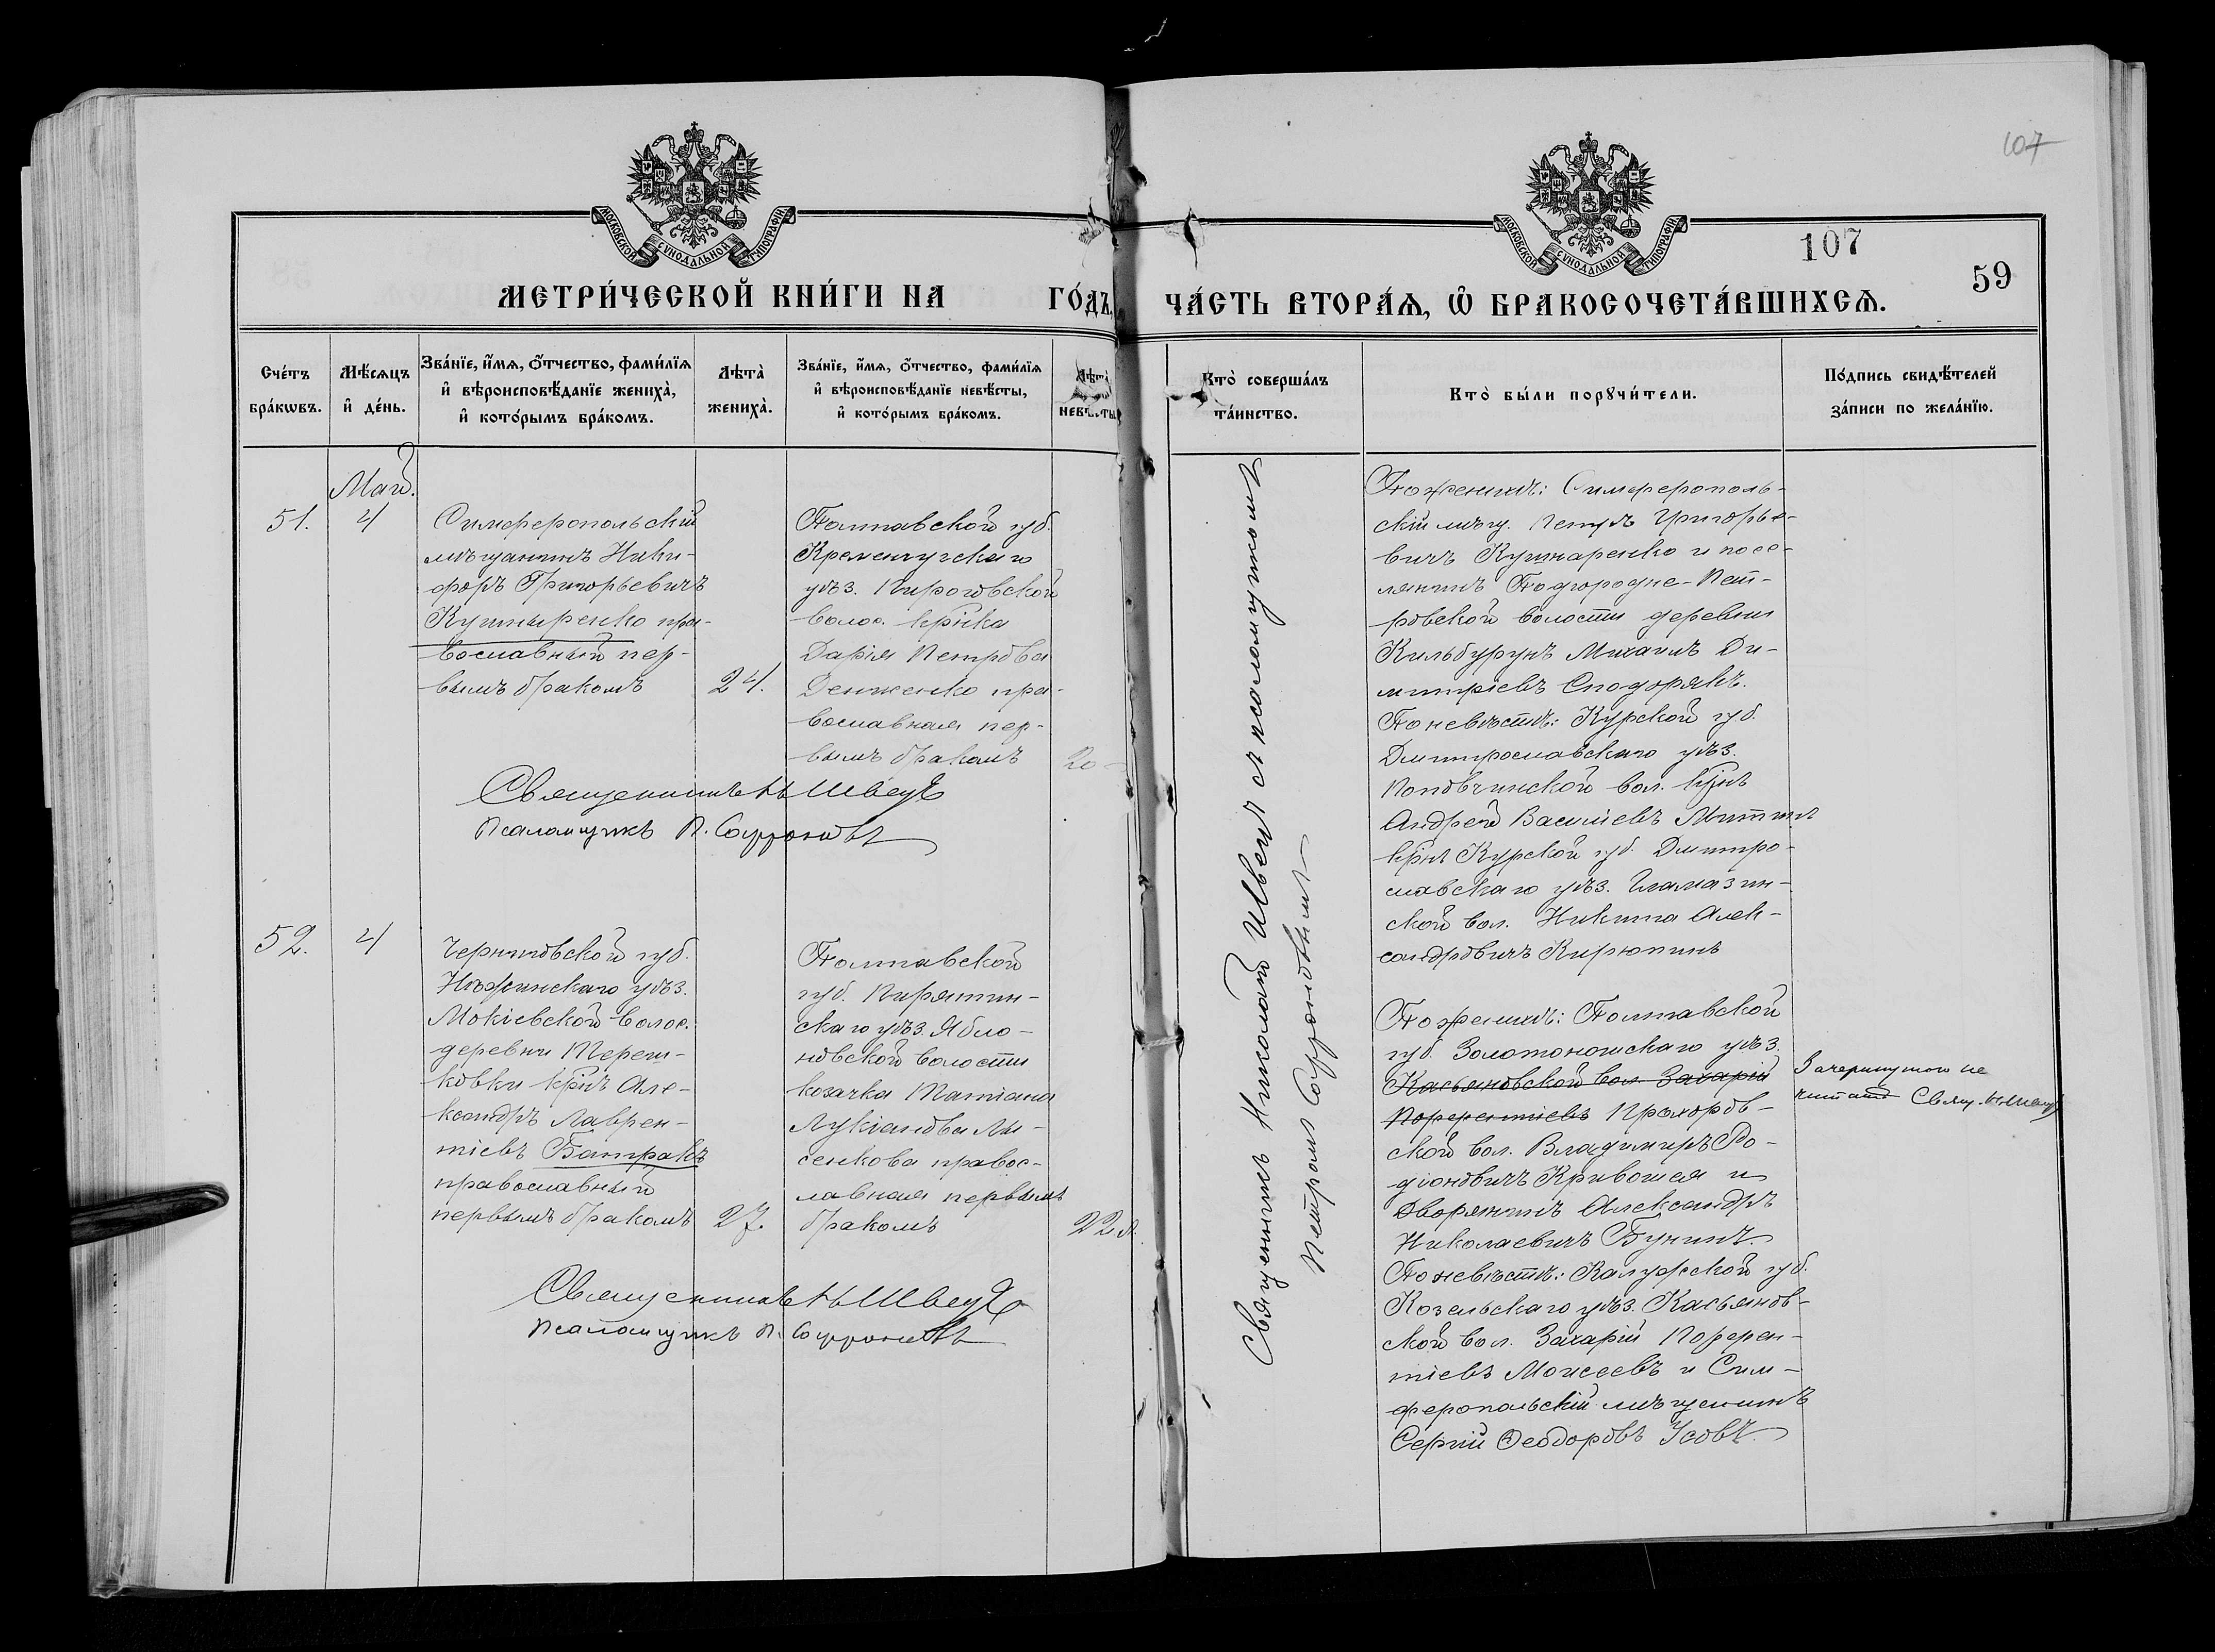 107
МОСКОВСКОЙ СѴНОДАЛЬНОЙ ТИПОГРАФІИ
МОСКОВСКОЙ СѴНОДАЛЬНОЙ ТИПОГРАФІИ
107
59
МЕТРИ́ЧЕСКОЙ КНИ́ГИ НА ГО́ДЪ,
ЧА́СТЬ ВТОРА́Ѧ, Ѡ БРАКОСОЧЕТА́ВШИХСѦ.
Сче́тъ бра́кѡвъ.
Мѣ́сѧцъ и҆ де́нь.
Зва́нїе, и҆́мѧ, ѻ҆́тчество, фами́лїѧ
и҆ вѣроисповѣ́данїе жениха̀,
и҆ кото́рымъ бра́комъ.
Лѣта̀ жениха̀.
Зва́нїе, и҆́мѧ, ѻ҆́тчество, фами́лїѧ
и҆ вѣроисповѣ́данїе невѣ́сты,
и҆ кото́рымъ бра́комъ.
Лѣта̀ невѣ́сты
Кто̀ соверша́лъ
та́инство.
Кто̀ бы́ли порꙋчи́тели.
По́дпись свидѣ́телей
за́писи по жела́нїю.
Май.
51.
4
Симферопольскій
мѣщанинъ Ники-
форъ Григорьевичъ
Кушнаренко пра-
вославный пер-
вымъ бракомъ
24.
Полтавской губ.
Кременчугскаго
уѣз. Пироговской
волос. крнка
Дарія Петрова
Денженко пра-
вославная пер-
вымъ бракомъ
20
Священникъ Н Швецъ
Псаломщикъ П. Софроновъ
Священникъ Николай Швецъ съ псаломщикомъ
Петромъ Софроновымъ
По женихѣ: Симферополь-
скій мѣщ. Петръ Григорье-
вичъ Кушнаренко и посе-
лянинъ Подгородне-Пет-
ровской волости деревни
Кильбурунъ Михаилъ Ди-
митріевъ Сподорякъ.
По невѣстѣ: Курской губ.
Дмитрославскаго уѣз.
Поповкинской вол. крнъ
Андрей Васильевъ Митинъ
крнъ Курской губ. Дмитро-
славскаго уѣз.
ской вол. Никита Алек-
сандровичъ Кирюпинъ
52.
4
Черниговской губ.
Нѣжинскаго уѣз.
Мокіевской волос.
деревни Тереш-
ковки крнъ Але-
ксандръ Лаврен-
тіевъ Батракъ
православный
первымъ бракомъ
27.
Полтавской
губ. Пирятин-
скаго уѣз. Ябло-
новской волости
козачка Татіана
Лукіанова Лы-
сенкова правос-
лавная первымъ
бракомъ
22 л.
Священникъ Н Швецъ
Псаломщикъ П. Софроновъ
По женихѣ: Полтавской
губ. Золотоношскаго уѣз.
Касьяновской вол. Захарій
Порфентіевъ Прохоров-
ской вол. Владимиръ Ро-
діоновичъ Кривошея и
дворянинъ Александръ
Николаевичъ Бунинъ.
По невѣстѣ: Калужской губ.
Козельскаго уѣз. Касьянов-
ской вол. Захарій Порфен-
тіевъ Моисеевъ и Сим-
феропольскій мѣщанинъ
Сергій Ѳеодоровъ Усовъ.
Зачеркнутого не
читать Свящ. Н Швецъ